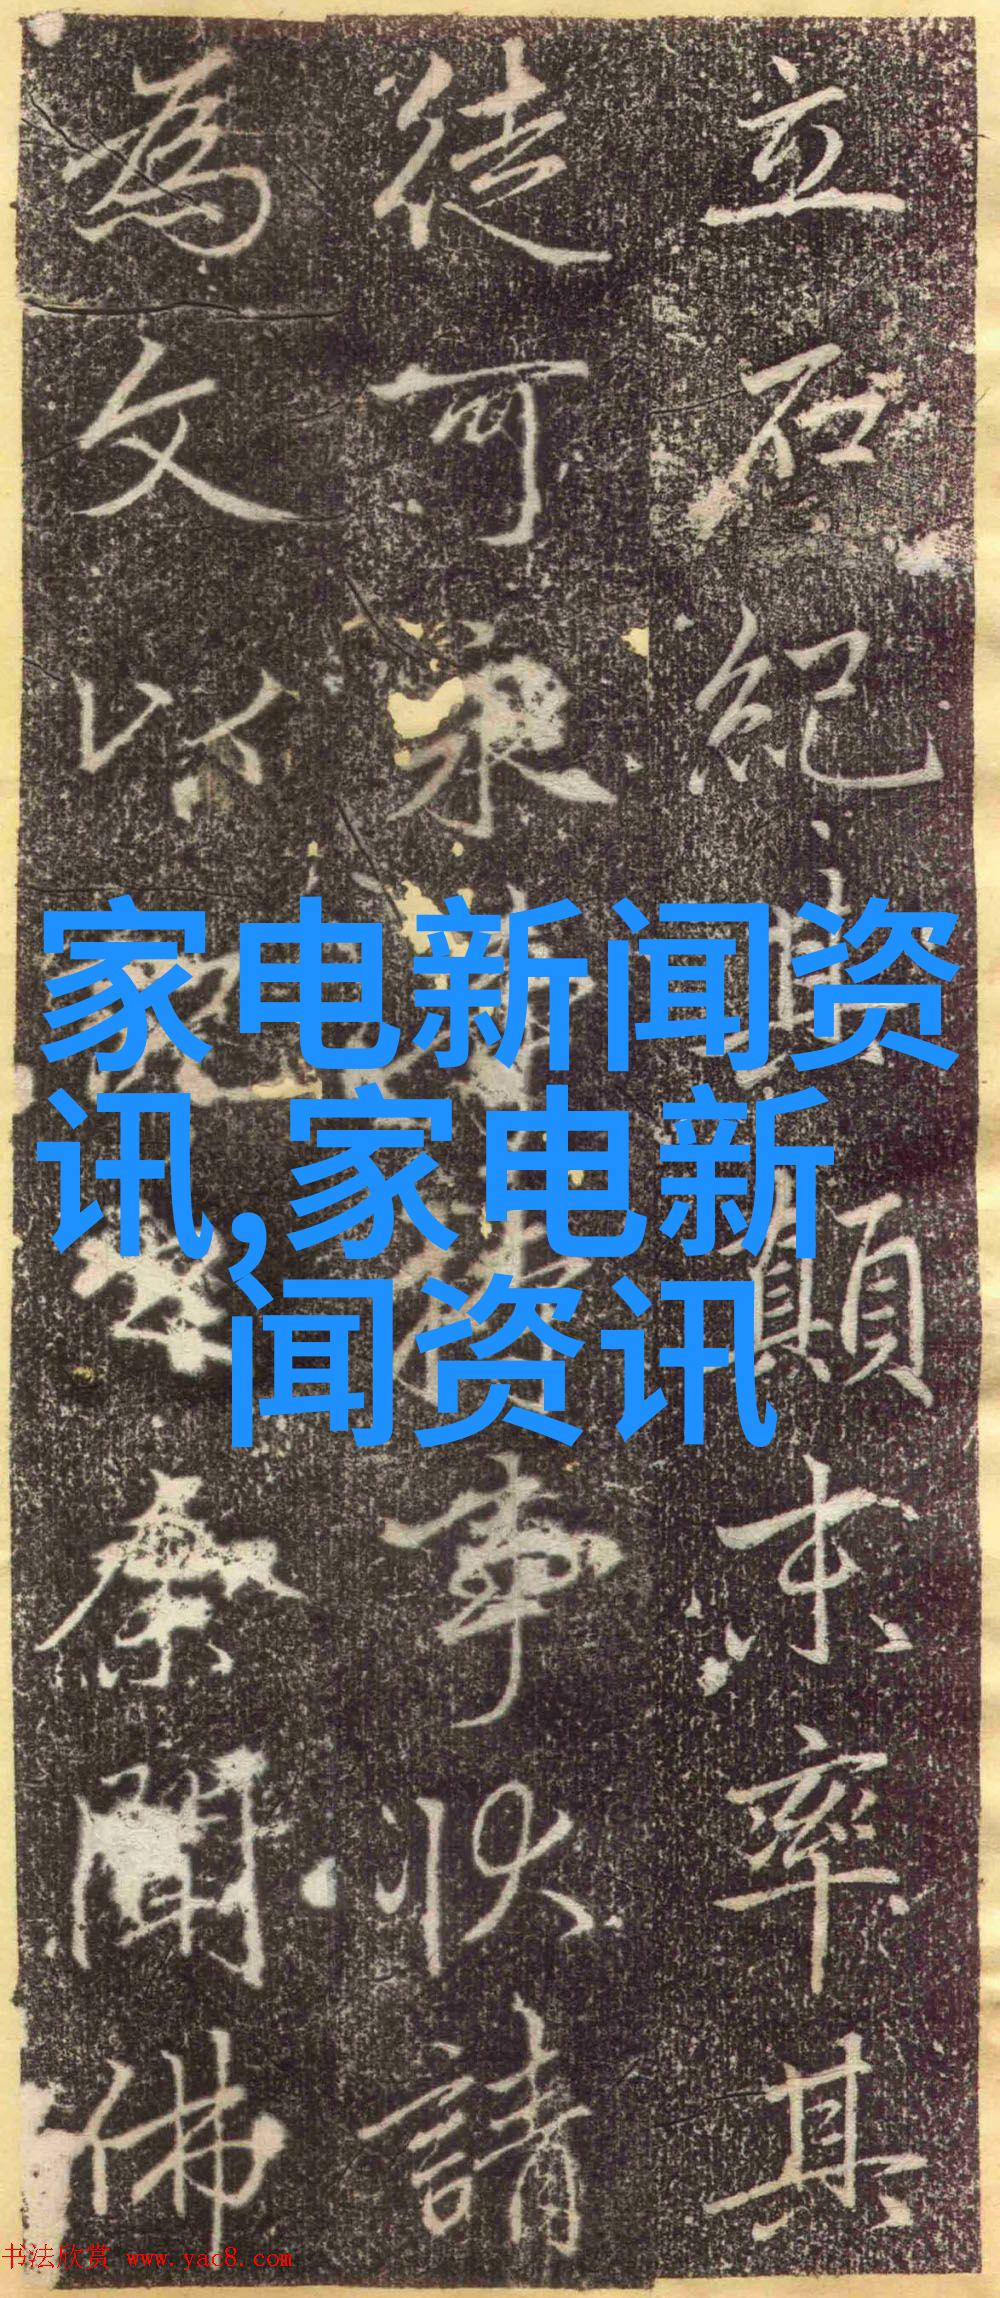 立石紀其顛末率其
徒可
事狀請
為文以
余聞佛
家电新闻资
讯,家电新
闻资讯
书法欣赏 www.yac8.com